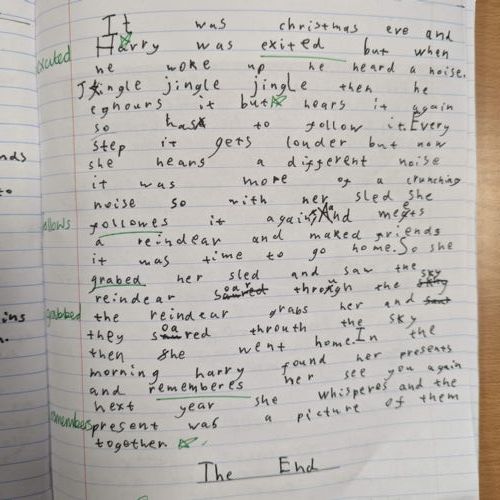 It was christmas eve and
Harry was exited but when
exicuted
he woke up he heard a noise.
Jingle jingle jingle then he
eghours it but hears it again
so has to follow it. Every
step it gets louder but now
nds
she hears a different noise
it was more of a crunching
to
noise so with her sled she
ollows
followes it again, And meets
a reindear and maked friends
it was time to go home. So she
grabed her sled and saw the
reindear soared through the sky
grabbed
the reindear grabs her and
ins
they soared throuth the sky
then she went home. In the
morning harry found her presents
and rememberes her see you again
next year she whisperes and the
remembers
present was a picture of them
together.
The End